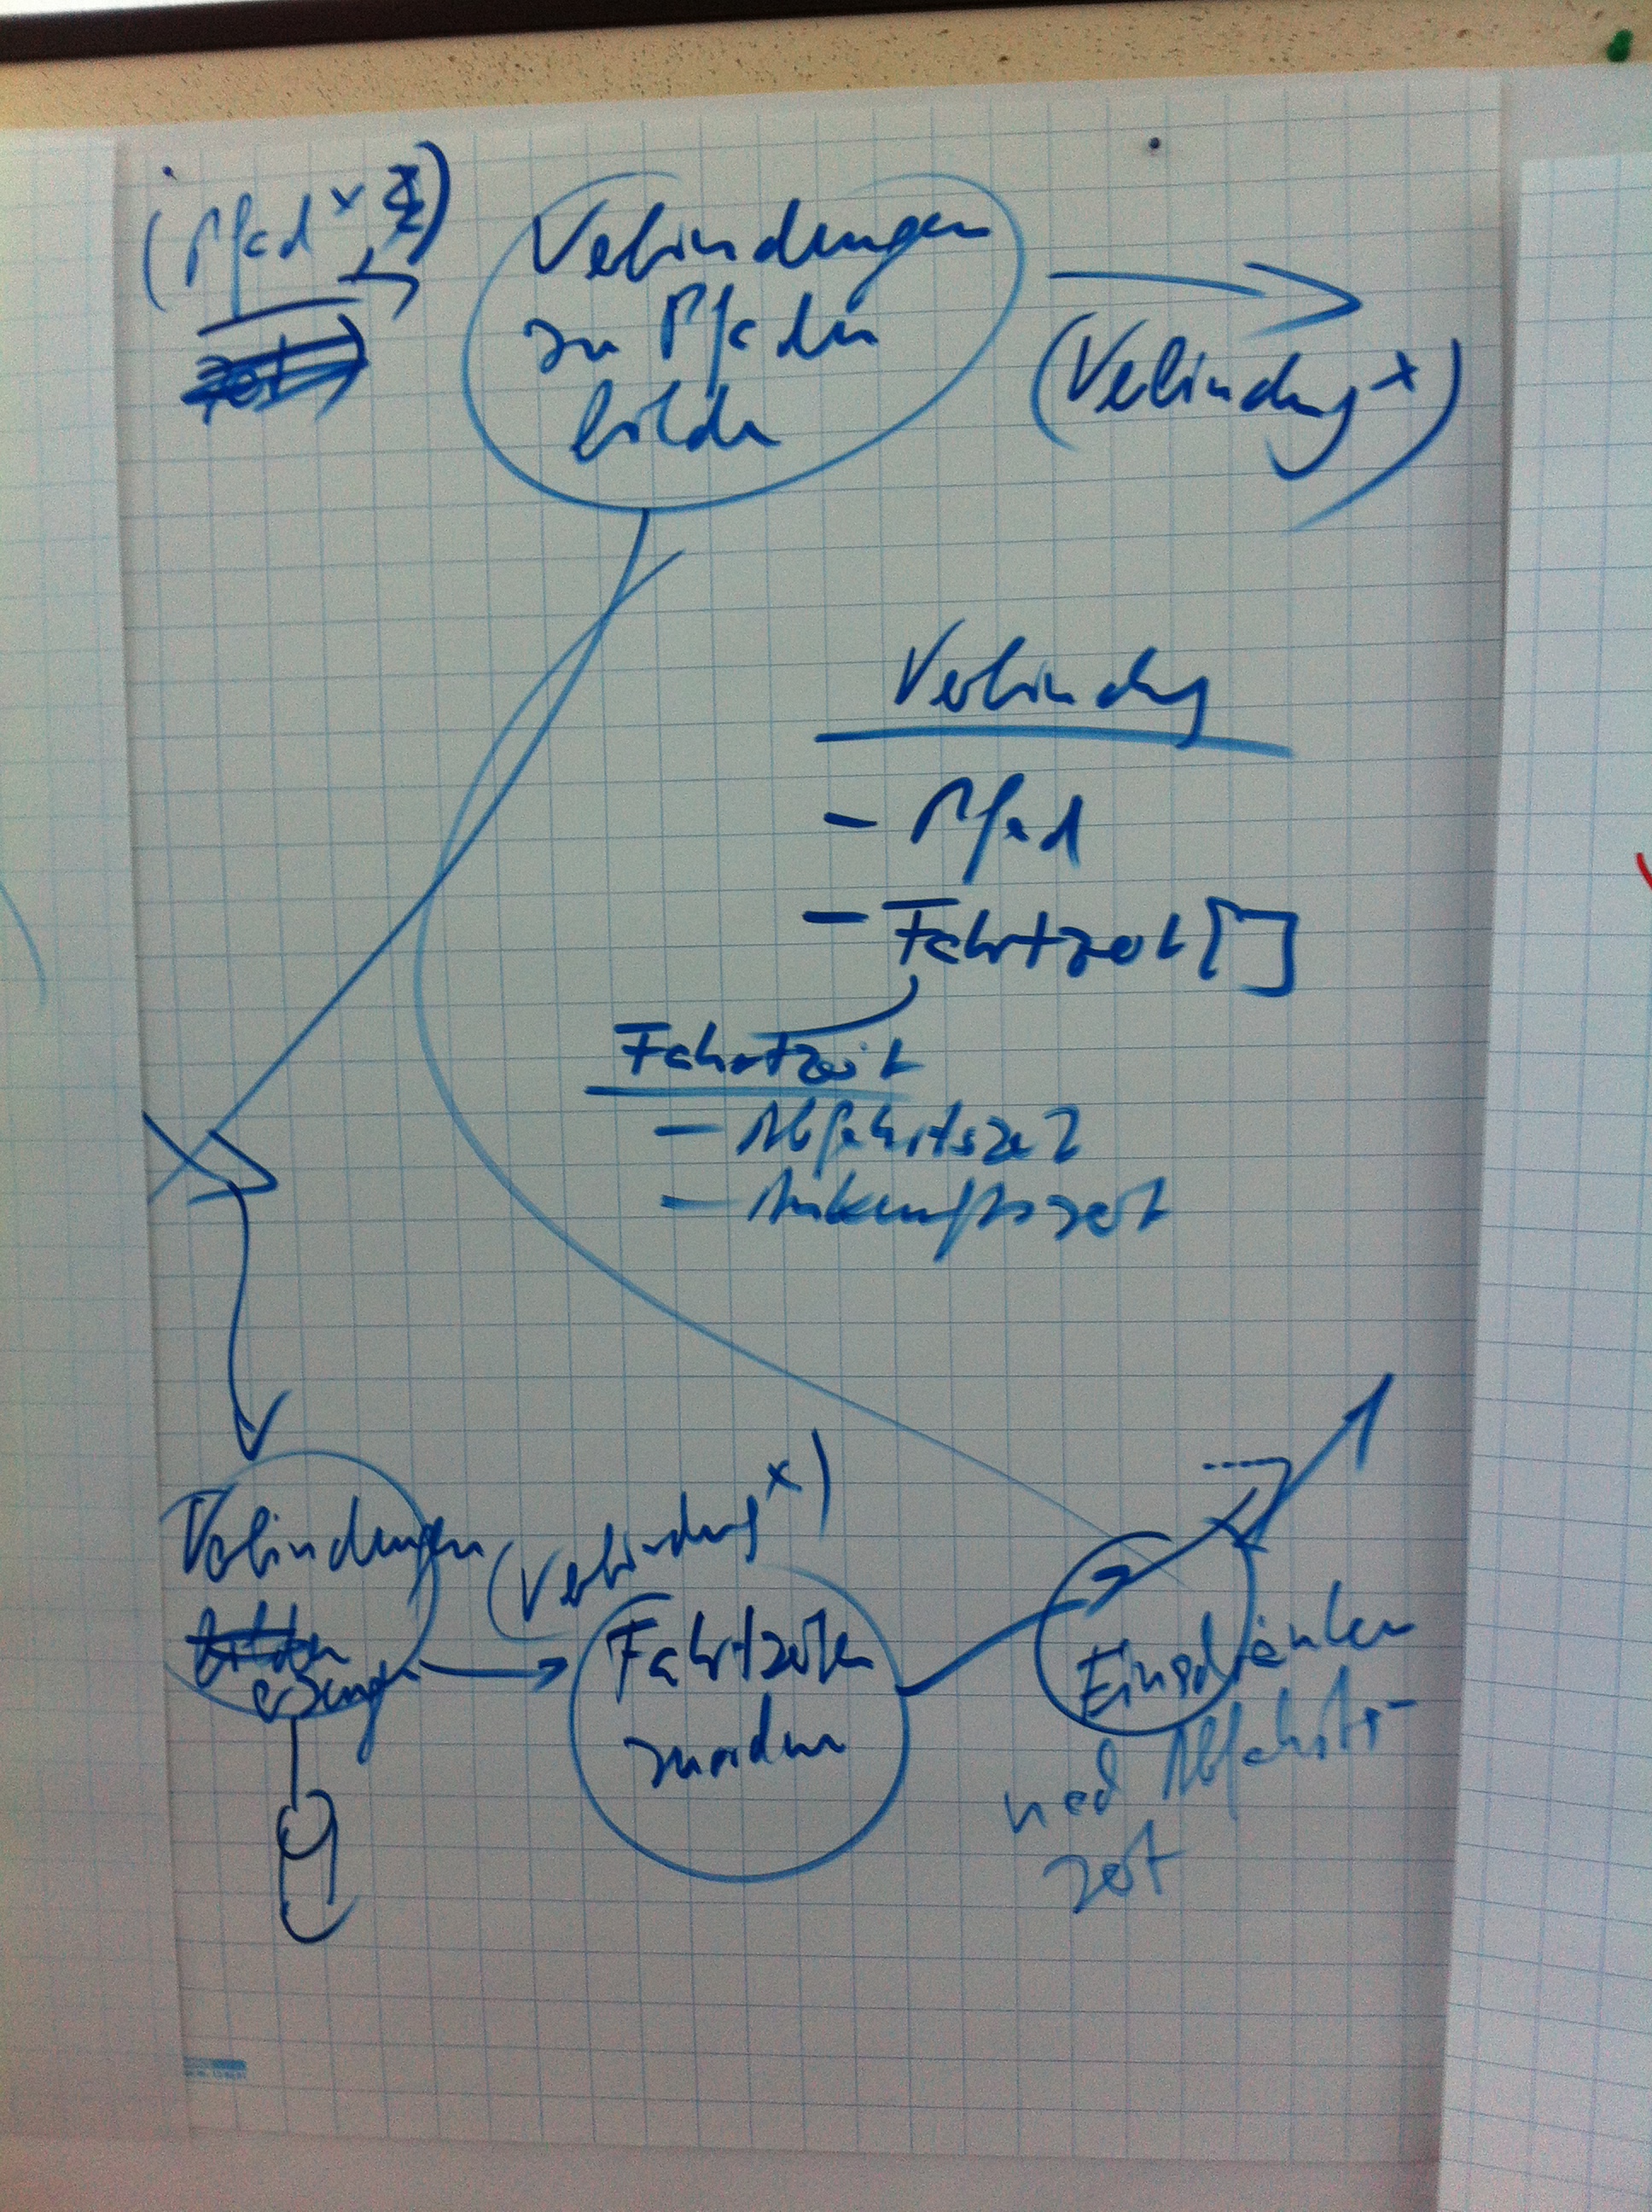 (Pfad*,
Verbindungen
zu Pfaden
bilden
(Verbindung*)
Verbindung
- Pfad
- Fahrtzeit[]
Fahrtzeit
- Abfahrtszeit
- Ankunftszeit
Verbindungen
bilden
erzeugen
(Verbindung*)
Fahrtzeiten
zuordnen
Einschränken
nach Abfahrts-
zeit